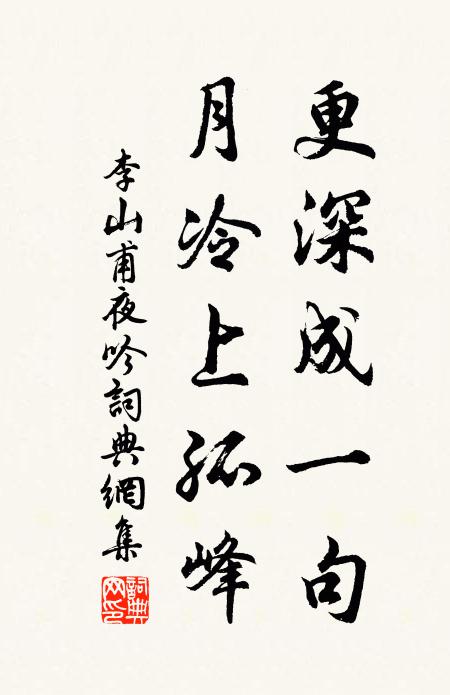 更深成一句
月冷上孤峰
李山甫夜吟詞典網集
詞典網印